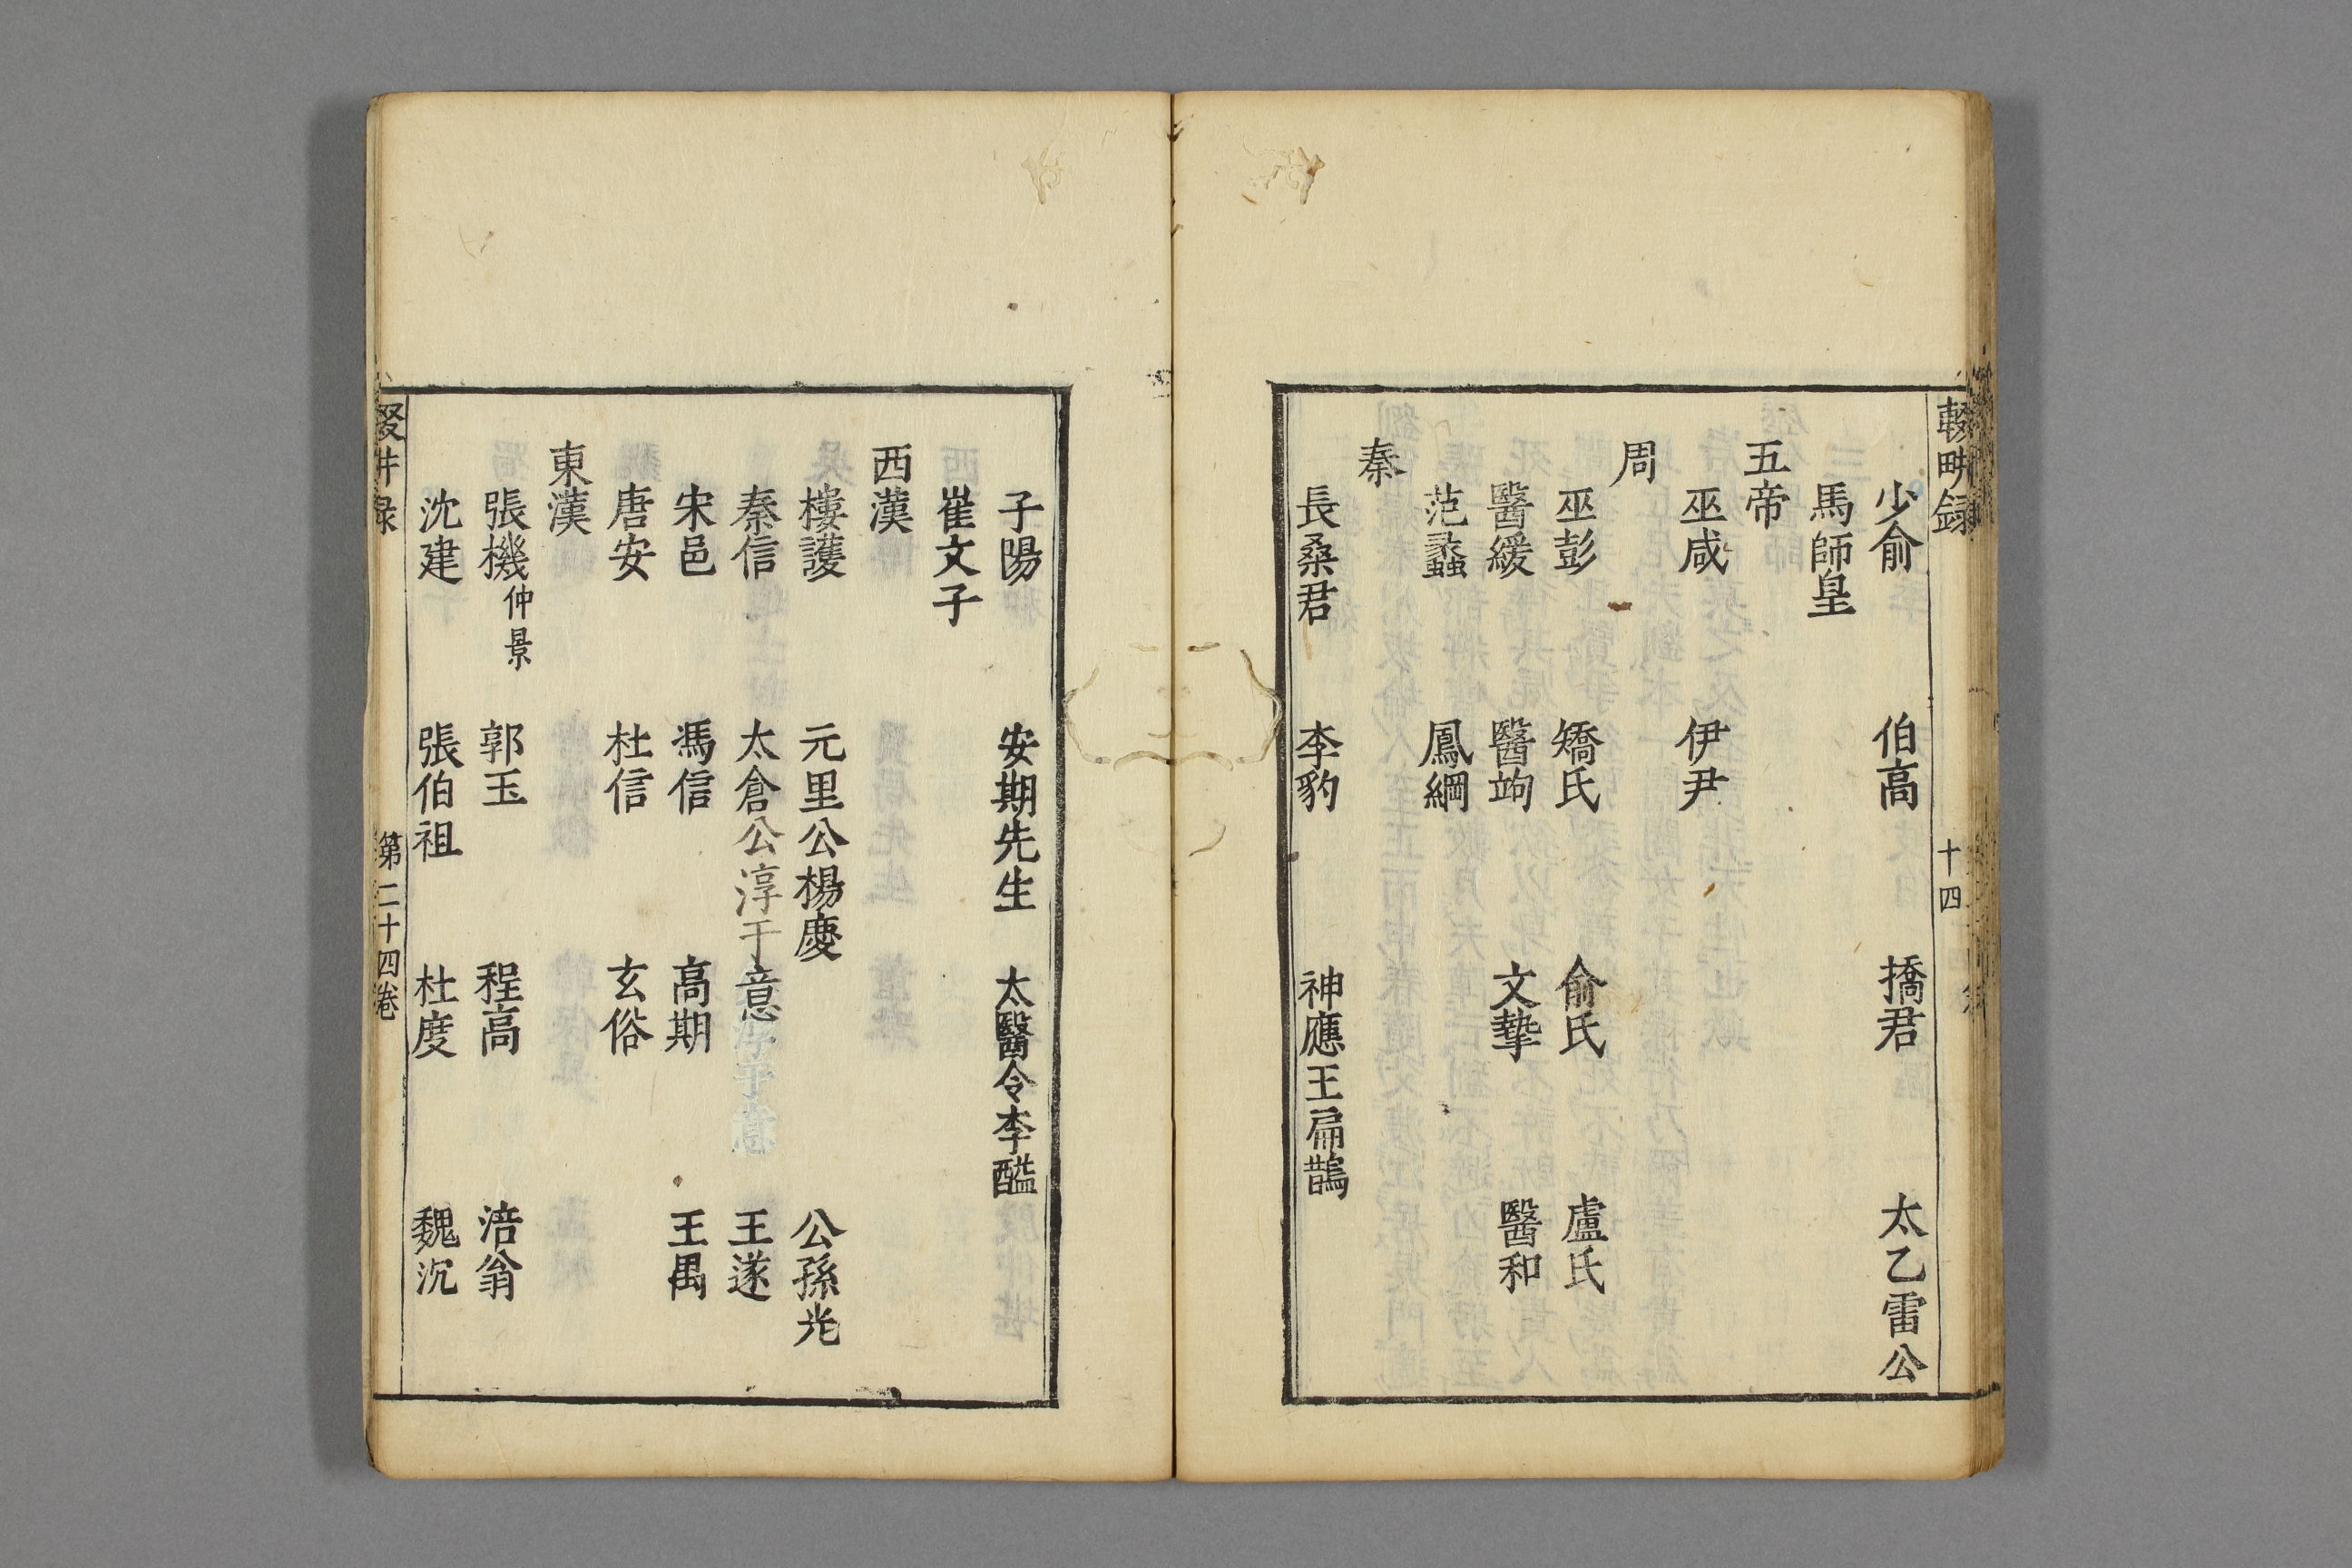 輟畊録
十四
少俞 伯高 撟君 太乙雷公
馬師皇
五帝
巫咸 伊尹
周
巫彭 矯氏 俞氏 盧氏
醫緩 醫竘 文摯 醫和
范蠡 鳳綱
秦
長桑君 李豹 神應王扁鵲
子陽 安期先生 太醫令李醯
崔文子
西漢
樓護 元里公楊慶 公孫光
秦信 太倉公淳于意 王遂
宋邑 馮信 高期 王禺
唐安 杜信 玄俗
東漢
張機仲景 郭玉 程高 涪翁
沈建 張伯祖 杜度 魏沉
輟畊録
第二十四卷